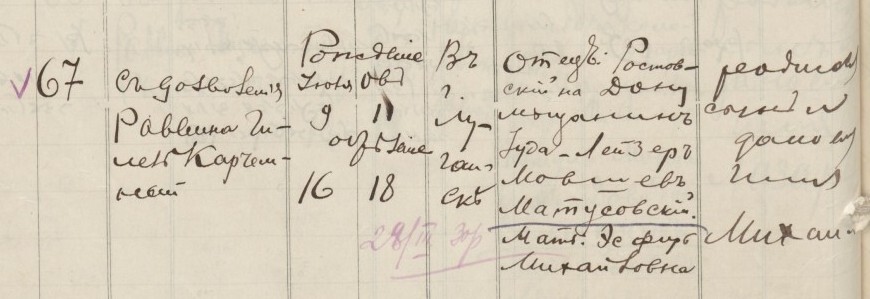 67
съ дозволенія
Раввина Ги-
летъ Карчем-
Рожденіе
Іюля
9 11
обрѣзаніе
16 18
28/III
Въ
г.
Лу-
ган-
скѣ
Отецъ: Ростов-
скій на Дону
мѣщанинъ
Іуда-Лейзеръ
Мовшевъ
Матусовскій.
Мать: Эсфирь
Михайловна
родился
сынъ и
дано ему
имя
Михаил